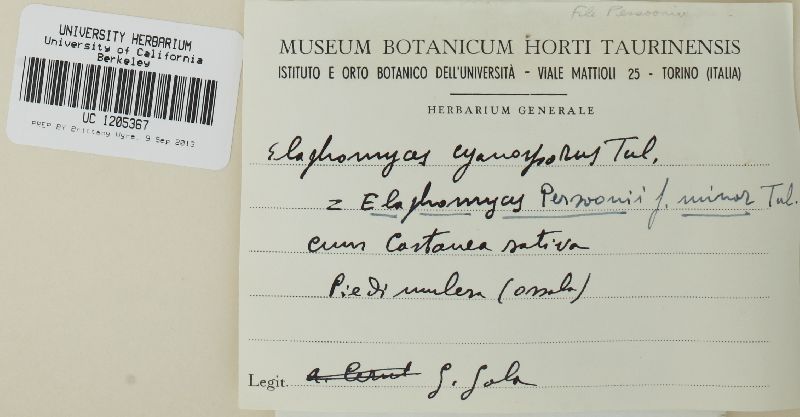 File Persoonii
UNIVERSITY HERBARIUM
University of California
Berkeley
UC 1205367
PREP BY Brittany Nyre, 9 Sep 2013
MUSEUM BOTANICUM HORTI TAURINENSIS
ISTITUTO E ORTO BOTANICO DELL'UNIVERSITÀ - VIALE MATTIOLI 25 - TORINO (ITALIA)
HERBARIUM GENERALE
Elaphomyces cyanosporus Tul.
= Elaphomyces Persoonii f. minor Tul.
cum Castanea sativa
Piedimulera (Ossola)
Legit. G. Gola